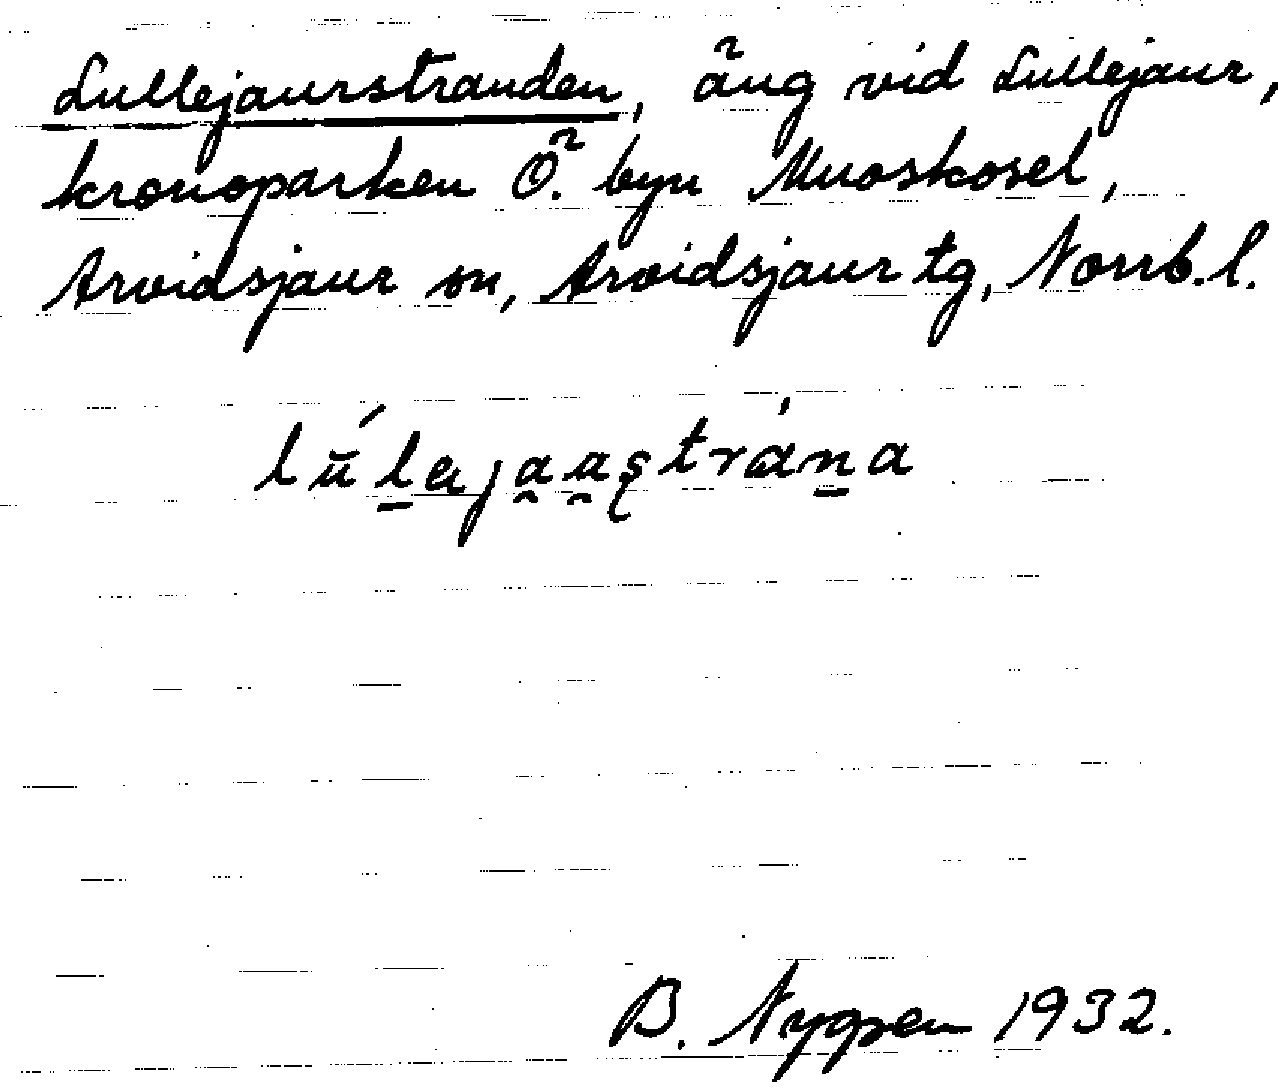 Lullejaurstranden, äng vid Lullejaur,
kronoparken Ö. byn Muoskosel,
Arvidsjaur sn, Arvidsjaur tg, Norrb. l.
lū́l̠ɐja̯a̯ştrána̠
B. Nygren 1932.